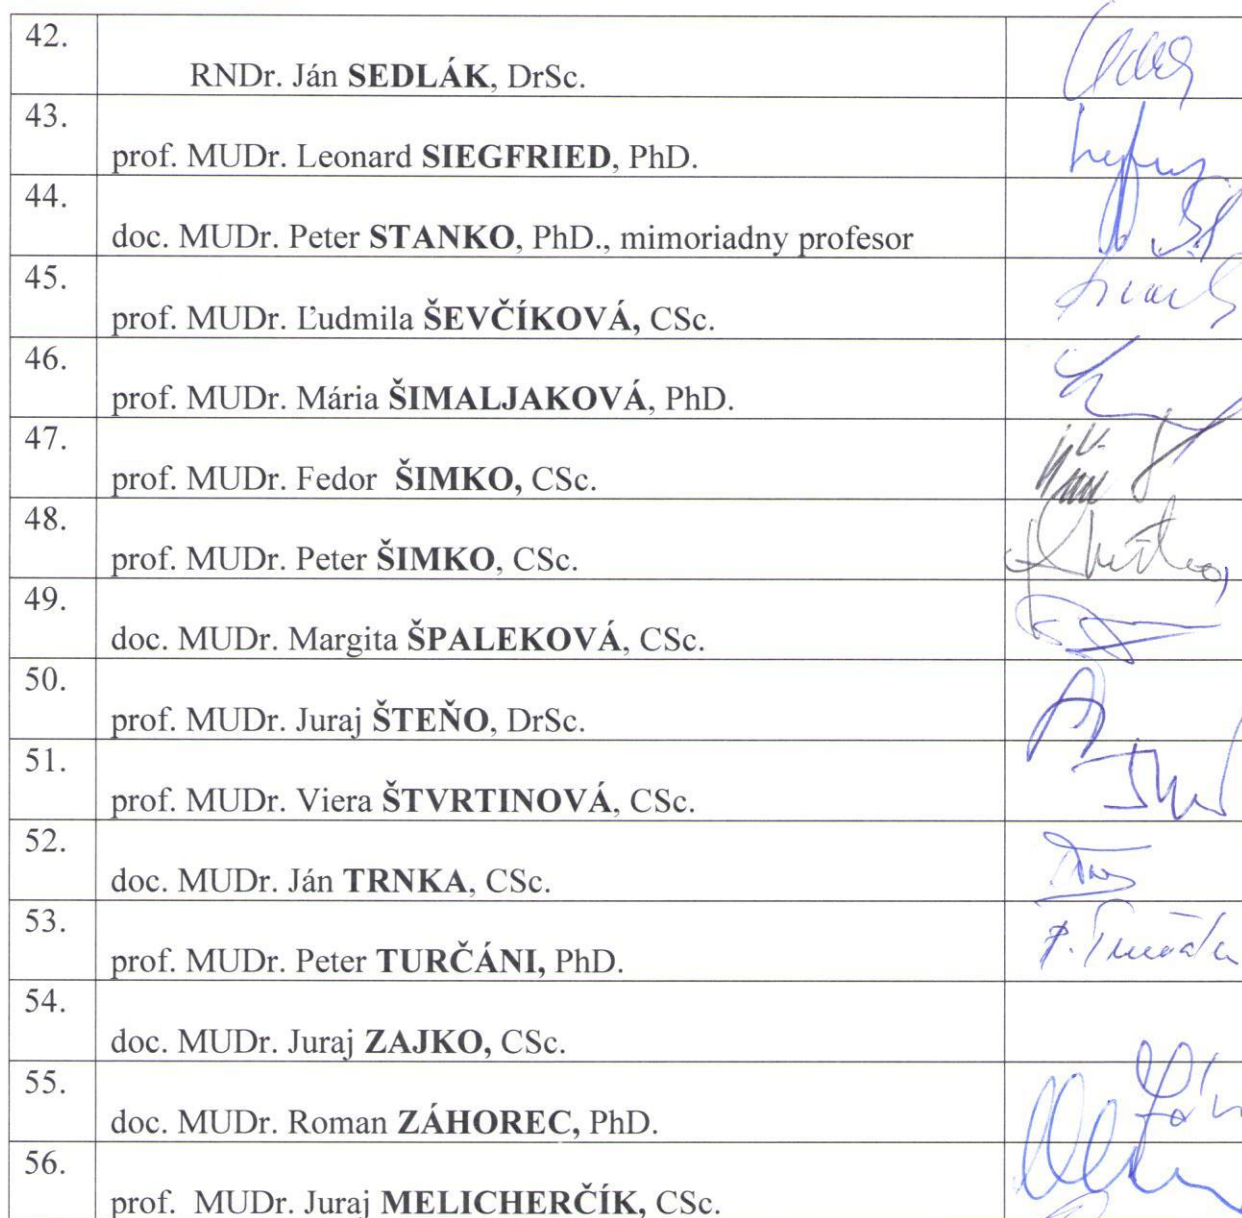 42.
RNDr. Ján SEDLÁK, DrSc.
43.
prof. MUDr. Leonard SIEGFRIED, PhD.
44.
doc. MUDr. Peter STANKO, PhD., mimoriadny profesor
45.
prof. MUDr. Ľudmila ŠEVČÍKOVÁ, CSc.
46.
prof. MUDr. Mária ŠIMALJAKOVÁ, PhD.
47.
prof. MUDr. Fedor ŠIMKO, CSc.
48.
prof. MUDr. Peter ŠIMKO, CSc.
49.
doc. MUDr. Margita ŠPALEKOVÁ, CSc.
50.
prof. MUDr. Juraj ŠTEŇO, DrSc.
51.
prof. MUDr. Viera ŠTVRTINOVÁ, CSc.
52.
doc. MUDr. Ján TRNKA, CSc.
53.
prof. MUDr. Peter TURČÁNI, PhD.
54.
doc. MUDr. Juraj ZAJKO, CSc.
55.
doc. MUDr. Roman ZÁHOREC, PhD.
56.
prof. MUDr. Juraj MELICHERČÍK, CSc.